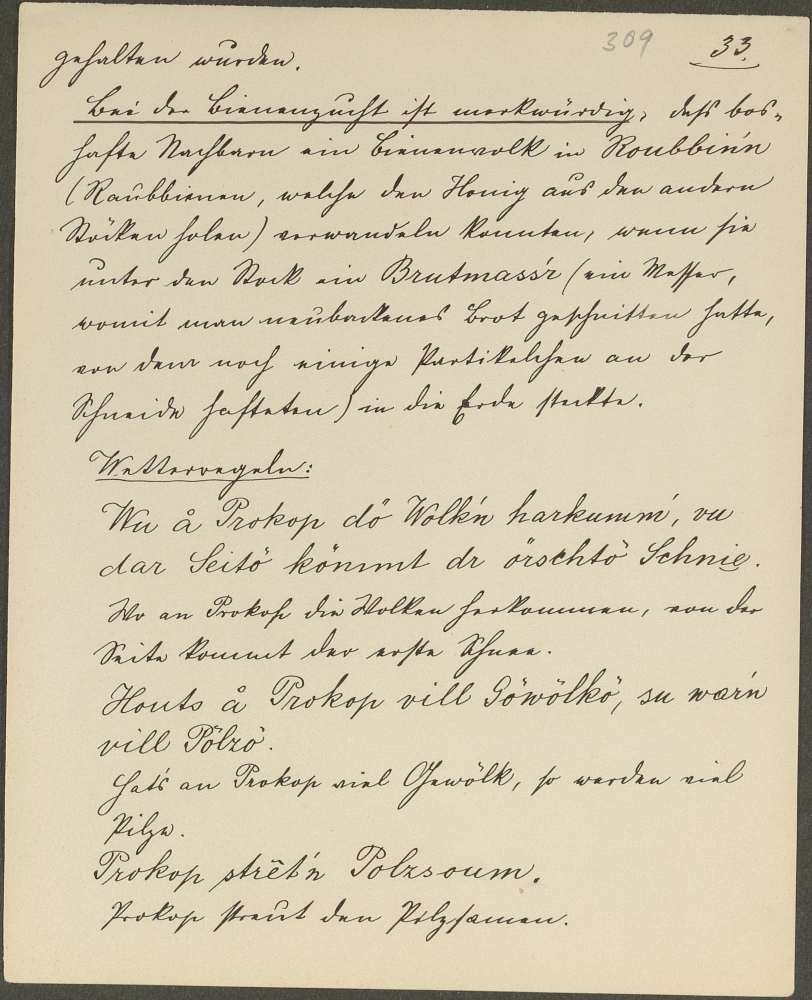 309 33.
gehalten wurden.
Bei der Bienenzucht ist merkwürdig, daß bos-
hafte Nachbarn ein Bienenvolk in Roubbin'n
(Raubbienen, welche den Honig aus den andern
Stöcken holen) verwandeln konnten, wenn sie
unter den Stock ein Brutmass'r (ein Messer,
womit man neubackenes Brot geschnitten hatte,
von dem noch einige Partikelchen an der
Schneide hafteten) in die Erde steckte.
Wetterregeln:
Wu å Prokop dö Wolk'n harkumm', vu
dar Seitö kömmt dr örschtö Schnie.
Wo an Prokop die Wolken herkommen, von der
Seite kommt der erste Schnee.
Houts å Prokop vill Göwölkö, su war'n
vill Pölzö.
Hat's an Prokop viel Gewölk, so werden viel
Pilze.
Prokop strêt'n Polzsoum.
Prokop streut den Pilzsamen.